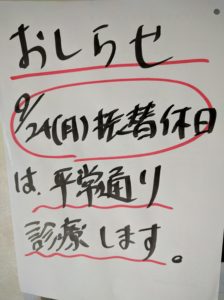 おしらせ
9/24(月)振替休日
は、平常通り
診療します。